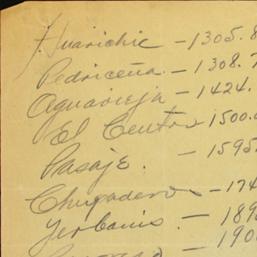 Huarichic - 1305.8
Pedriceña - 1308.7
Aguavieja - 1424.
El Centro 1500.
Pasaje. - 1595
Chupadero - 174
Yerbanis. - 189
190